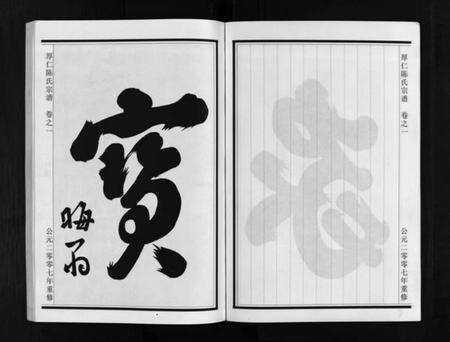 厚仁陈氏宗谱 卷之一
公元二零零七年重修
寳
晦翁
厚仁陈氏宗谱 卷之一
公元二零零七年重修